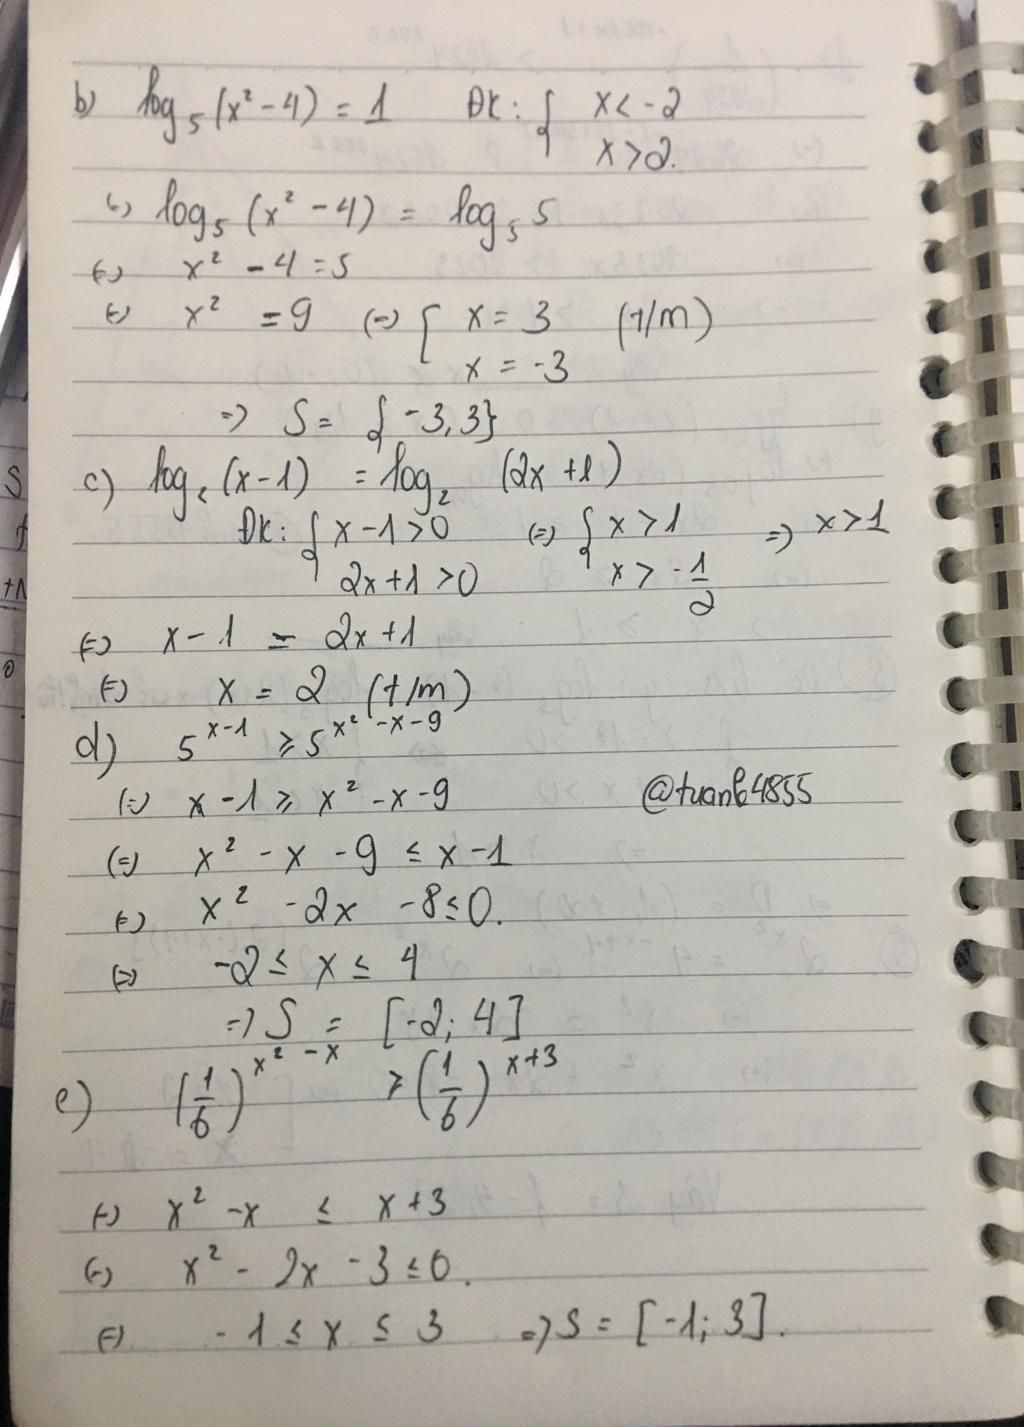 b) log₅(x² - 4) = 1 ĐK: { x < -2
x > 2.
(=) log₅(x² - 4) = log₅ 5
(=) x² - 4 = 5
(=) x² = 9 (=) { x = 3 (t/m)
x = -3
=> S = {-3, 3}
c) log₂(x-1) = log₂ (2x+1)
ĐK: { x-1 > 0 (=) { x > 1 => x > 1
2x+1 > 0 x > -1/2
(=) x - 1 = 2x + 1
(=) x = 2 (t/m)
d) 5^(x-1) ≥ 5^(x² - x - 9)
(=) x - 1 ≥ x² - x - 9 @tuanb4855
(=) x² - x - 9 ≤ x - 1
(=) x² - 2x - 8 ≤ 0.
(=) -2 ≤ x ≤ 4
=> S = [-2; 4]
e) (1/6)^(x² - x) ≥ (1/6)^(x+3)
(=) x² - x ≤ x + 3
(=) x² - 2x - 3 ≤ 0.
(=) -1 ≤ x ≤ 3 => S = [-1; 3].